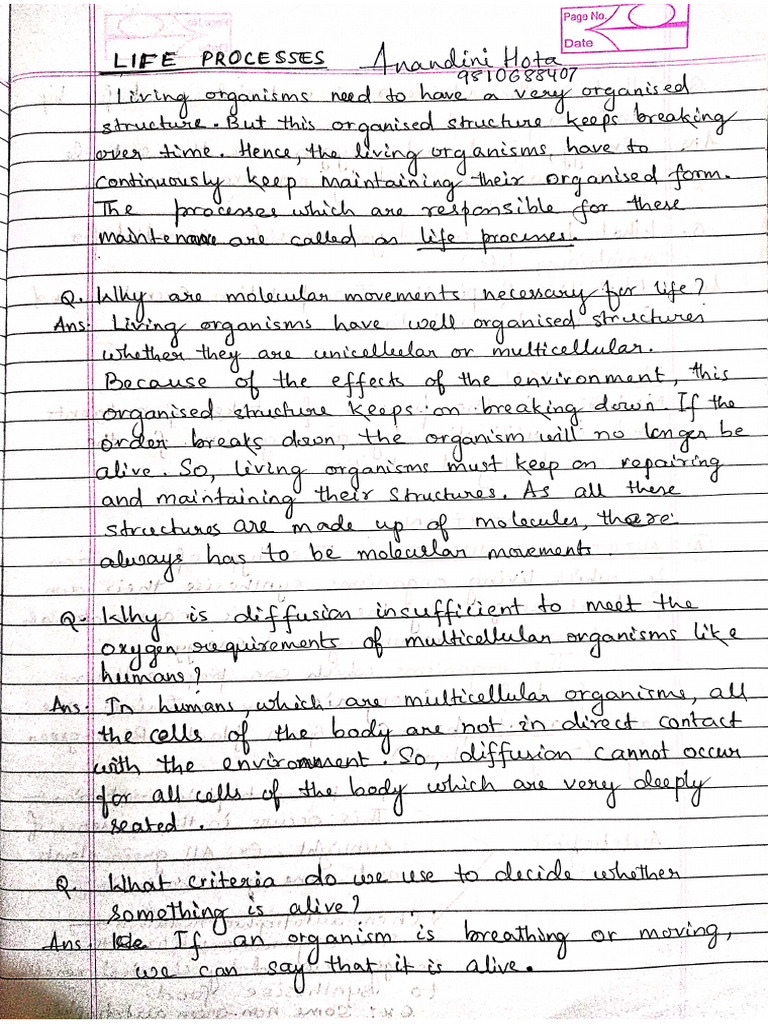 Page No.
Date
LIFE PROCESSES Anandini Hota
9810688407
Living organisms need to have a very organised
structure. But this organised structure keeps breaking
over time. Hence, the living organisms, have to
continuously keep maintaining their organised form.
The processes which are responsible for these
maintenance are called as life processes.
Q. Why are molecular movements necessary for life?
Ans: Living organisms have well organised structures
whether they are unicellular or multicellular.
Because of the effects of the environment, this
organised structure keeps on breaking down. If the
order breaks down, the organism will no longer be
alive. So, living organisms must keep on repairing
and maintaining their structures. As all these
structures are made up of molecules, there
always has to be molecular movements.
Q. Why is diffusion insufficient to meet the
oxygen requirements of multicellular organisms like
humans?
Ans. In humans, which are multicellular organisms, all
the cells of the body are not in direct contact
with the environment. So, diffusion cannot occur
for all cells of the body which are very deeply
seated.
Q. What criteria do we use to decide whether
something is alive?
Ans If an organism is breathing or moving,
we can say that it is alive.